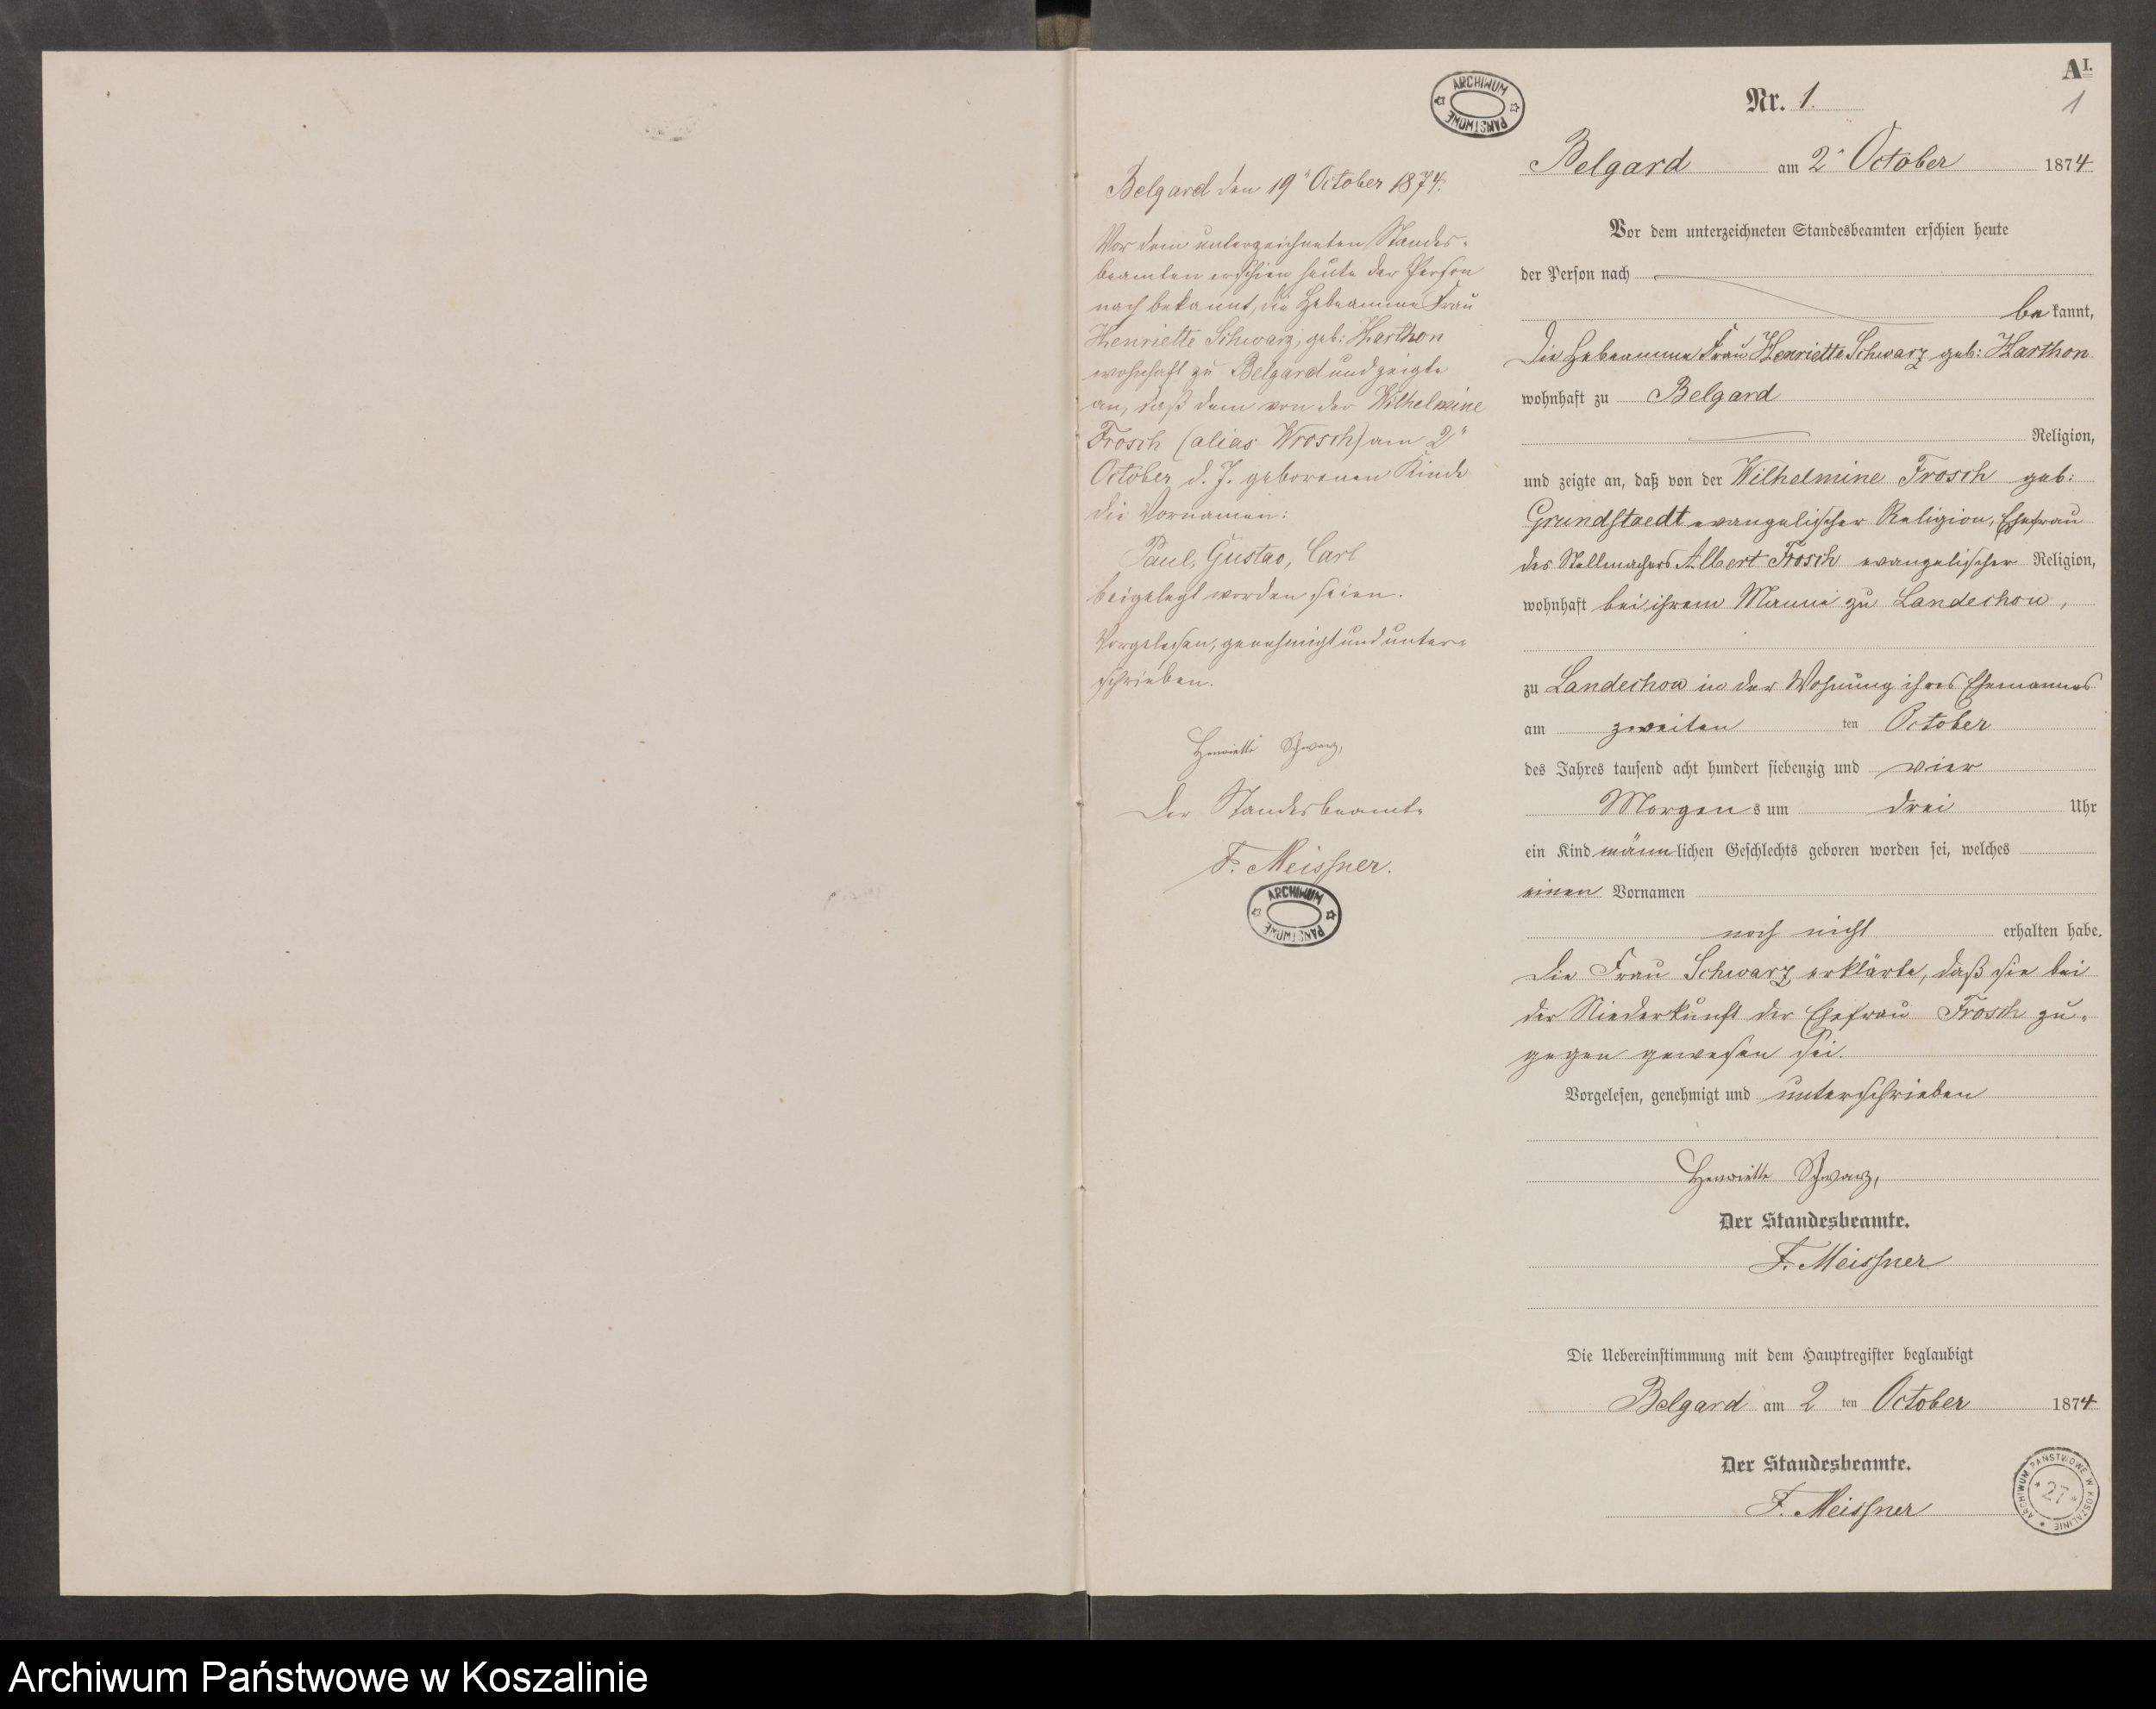 A I.
1
Nr. 1.
ARCHIWUM PAŃSTWOWE
Belgard am 2n October 1874
Vor dem unterzeichneten Standesbeamten erschien heute
der Person nach
be kannt,
die Hebeamme Frau Henriette Schwarz geb: Harthon
wohnhaft zu Belgard
Religion,
und zeigte an, daß von der Wilhelmine Frosch geb:
Grundstaedt evangelischer Religion, Ehefrau
des Stellmachers Albert Frosch evangelischer Religion,
wohnhaft bei ihrem Manne zu Landechow,
zu Landechow in der Wohnung ihres Ehemannes
am zweiten ten October
des Jahres tausend acht hundert siebenzig und vier
Morgens um drei Uhr
ein Kind männlichen Geschlechts geboren worden sei, welches
einen Vornamen
noch nicht erhalten habe.
Die Frau Schwarz erklärte, daß sie bei
der Niederkunft der Ehefrau Frosch zu-
gegen gewesen sei.
Vorgelesen, genehmigt und unterschrieben
Henriette Schwarz,
Der Standesbeamte.
F. Meissner
Die Uebereinstimmung mit dem Hauptregister beglaubigt
Belgard am 2 ten October 1874
Der Standesbeamte.
F. Meissner
ARCHIWUM PAŃSTWOWE W KOSZALINIE
27
Belgard den 19n October 1874.
Vor dem unterzeichneten Standes-
beamten erschien heute der Person
nach bekannt, die Hebeamme Frau
Henriette Schwarz, geb: Harthon
wohnhaft zu Belgard und zeigte
an, daß dem von der Wilhelmine
Frosch (alias Wrosch) am 2n
October d. J. geborenen Kinde
die Vornamen:
Paul, Gustav, Carl
beigelegt worden seien.
Vorgelesen, genehmigt und unter-
schrieben.
Henriette Schwarz,
Der Standesbeamte
F. Meissner.
ARCHIWUM PAŃSTWOWE
Archiwum Państwowe w Koszalinie